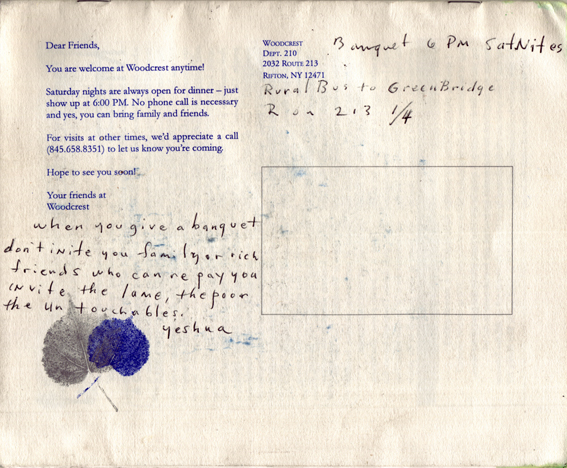 Dear Friends,
You are welcome at Woodcrest anytime!
Saturday nights are always open for dinner – just
show up at 6:00 PM. No phone call is necessary
and yes, you can bring family and friends.
For visits at other times, we'd appreciate a call
(845.658.8351) to let us know you're coming.
Hope to see you soon!
Your friends at
Woodcrest
when you give a banquet
don't inite you family or rich
friends who can re pay you
invite the lame, the poor
the un touchables.
yeshua
WOODCREST
DEPT. 210
2032 ROUTE 213
RIFTON, NY 12471
Banquet 6 PM Sat Nites
Rural Bus to GreenBridge
R on 213 1/4